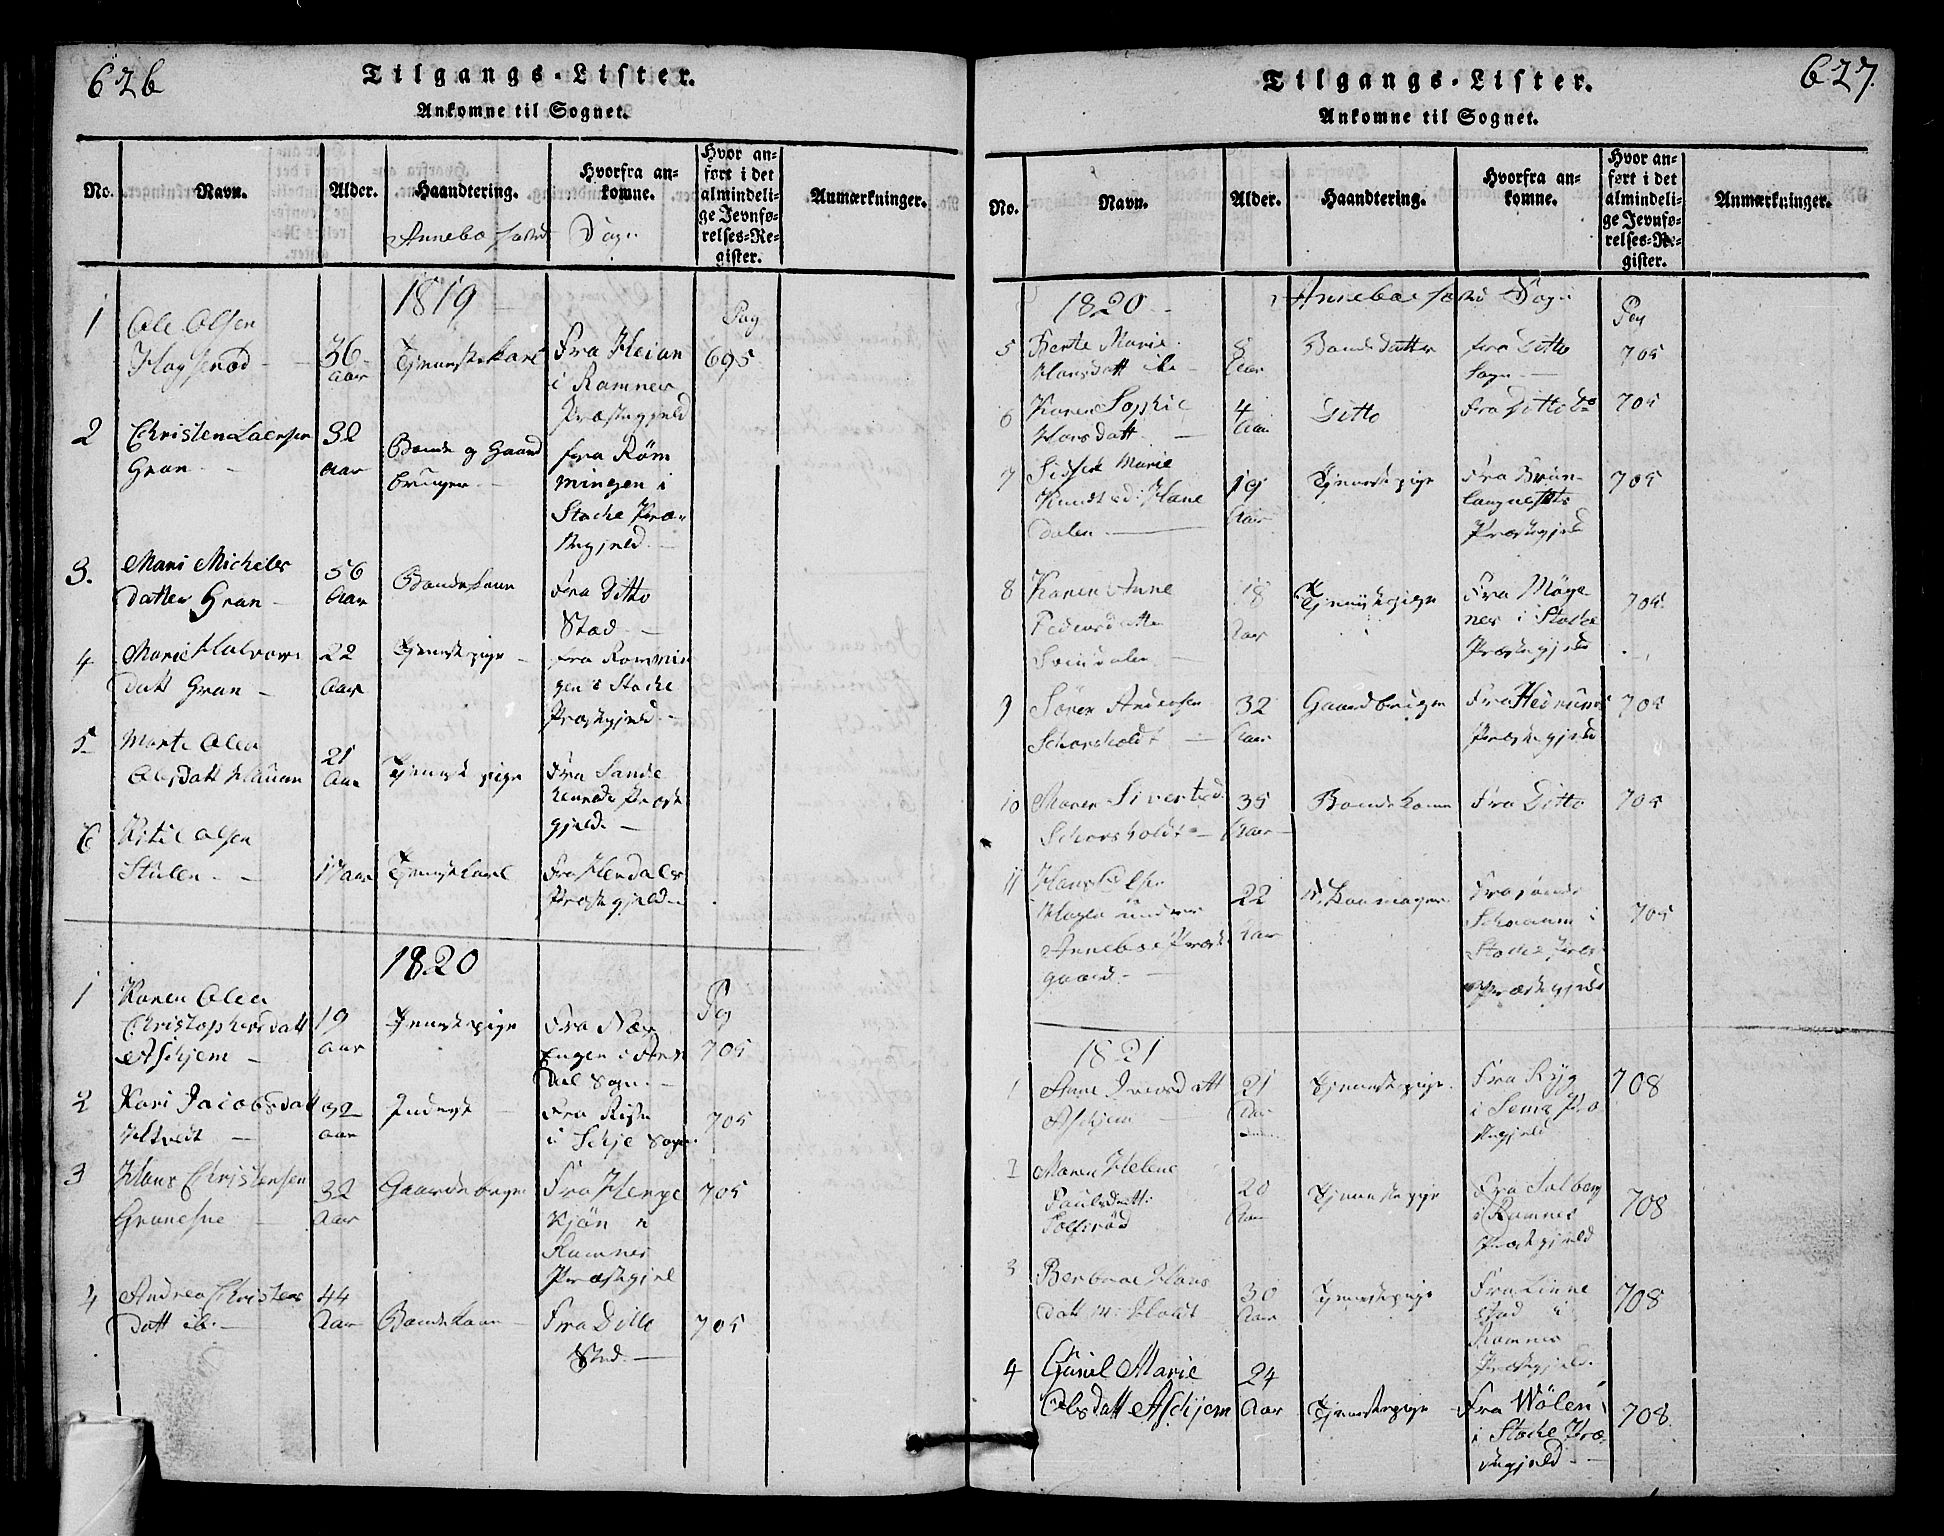 626
Tilgangs-Lister.
Ankomne til Sognet.
No.
Navn.
Alder.
Haandtering.
Hvorfra an-
komne.
Hvor an-
ført i det
almindeli-
ge Jevnfø-
relses-Re-
gister.
Anmærkninger.
Annebo Sogn
1819
Pag
1 Ole Olsen
36 Aar
Tjenestekarl
Fra Heian
i Ramnes
Præstegjeld
695
2 Christen Larsen
Gran
Aar
Bonde og Gaard
bruger
fra Røm
mingen i
Stocke Præ-
stegjeld
3. Mari Michels
datter Gran
56
Aar
Bondekone
Fra Ditto
Sted
4 Marie Halvors
datt Gran
22
Aar
Tjenestepige
fra Rommin
gen i Stocke
Præstegjeld
5 Marte Olea
Olsdatt
21
Aar
Tjenestepige
Fra Sande
herreds Præste
gjeld
6 Kitil Olsen
17 Aar
Tjenestekarl
Fra
Præstegjeld
1820
Pag
1 Karen Olea
Christophersdatt
Askjem
19
Aar
Tjenestepige
Fra
Engen i
dal Sogn
705
2 Kari Jacobsdatt
32
Aar
Inderst
Fra
i Schje Sogn.
705
3 Hans Christensen
32
Aar
Gaardbruger
Fra
i
Ramnes
Præstegjel
705
4 Andrea Christens
datt ib.
44
Aar
Bondekone
Fra Ditto
Sted
705
627.
Tilgangs-Lister.
Ankomne til Sognet.
No.
Navn.
Alder.
Haandtering.
Hvorfra an-
komne.
Hvor an-
ført i det
almindeli-
ge Jevnfø-
relses-Re-
gister.
Anmærkninger.
1820
Anneboe Sogn
Pag
5 Berte Marie
Hansdatt ib.
8
Aar
Bondedatter
fra Ditto
Sogn
705
6 Karen Sophie
Hansdatt
4
Aar
Ditto
Fra Ditto Do
705
7 Marie
Knudsd: Hane
dalen
19
Aar
Tjenestepige
Fra Brun-
laugnes
Præstegjeld
705
8 Karen Anne
Pedersdatter
Svindalen
18
Aar
Tjenestepige
Fra Møge
nes i Stocke
Præstegjeld
705.
9 Sören Andersen
Schorsholdt
32
Aar
Gaardbruger
Fra Hedrums
Præstegjeld
705
10 Maren Sivertsd.
Schorsholdt
35
Aar
Bondekone
Fra Ditto
705
11 Hans Olsen
Hagen under
Anneboe Præste
gaard
22
Aar
Fra Søndre
i
Stocke
Præstegjeld
705
1821
1 Anne Iversdatt
Askjem
21
Aar
Tjenestepige
Fra Ryg
i Sems Præ
stegjeld
708
2 Maren Helene
Paulsdatt:
Solfsröd
20
Aar
Tjenestepige
Fra Solberg
i Ramnes
Præstegjeld
708
3 Berboe Hans
datt Holdt
30
Aar
Tjenestepige
Fra Linne
stad i
Ramnes
Præstegjeld.
708
4 Gunil Marie
Olsdatt Askjem
24
Aar
Tjenestepige
Fra Wölen
i Stocke Præ-
stegjeld
708.